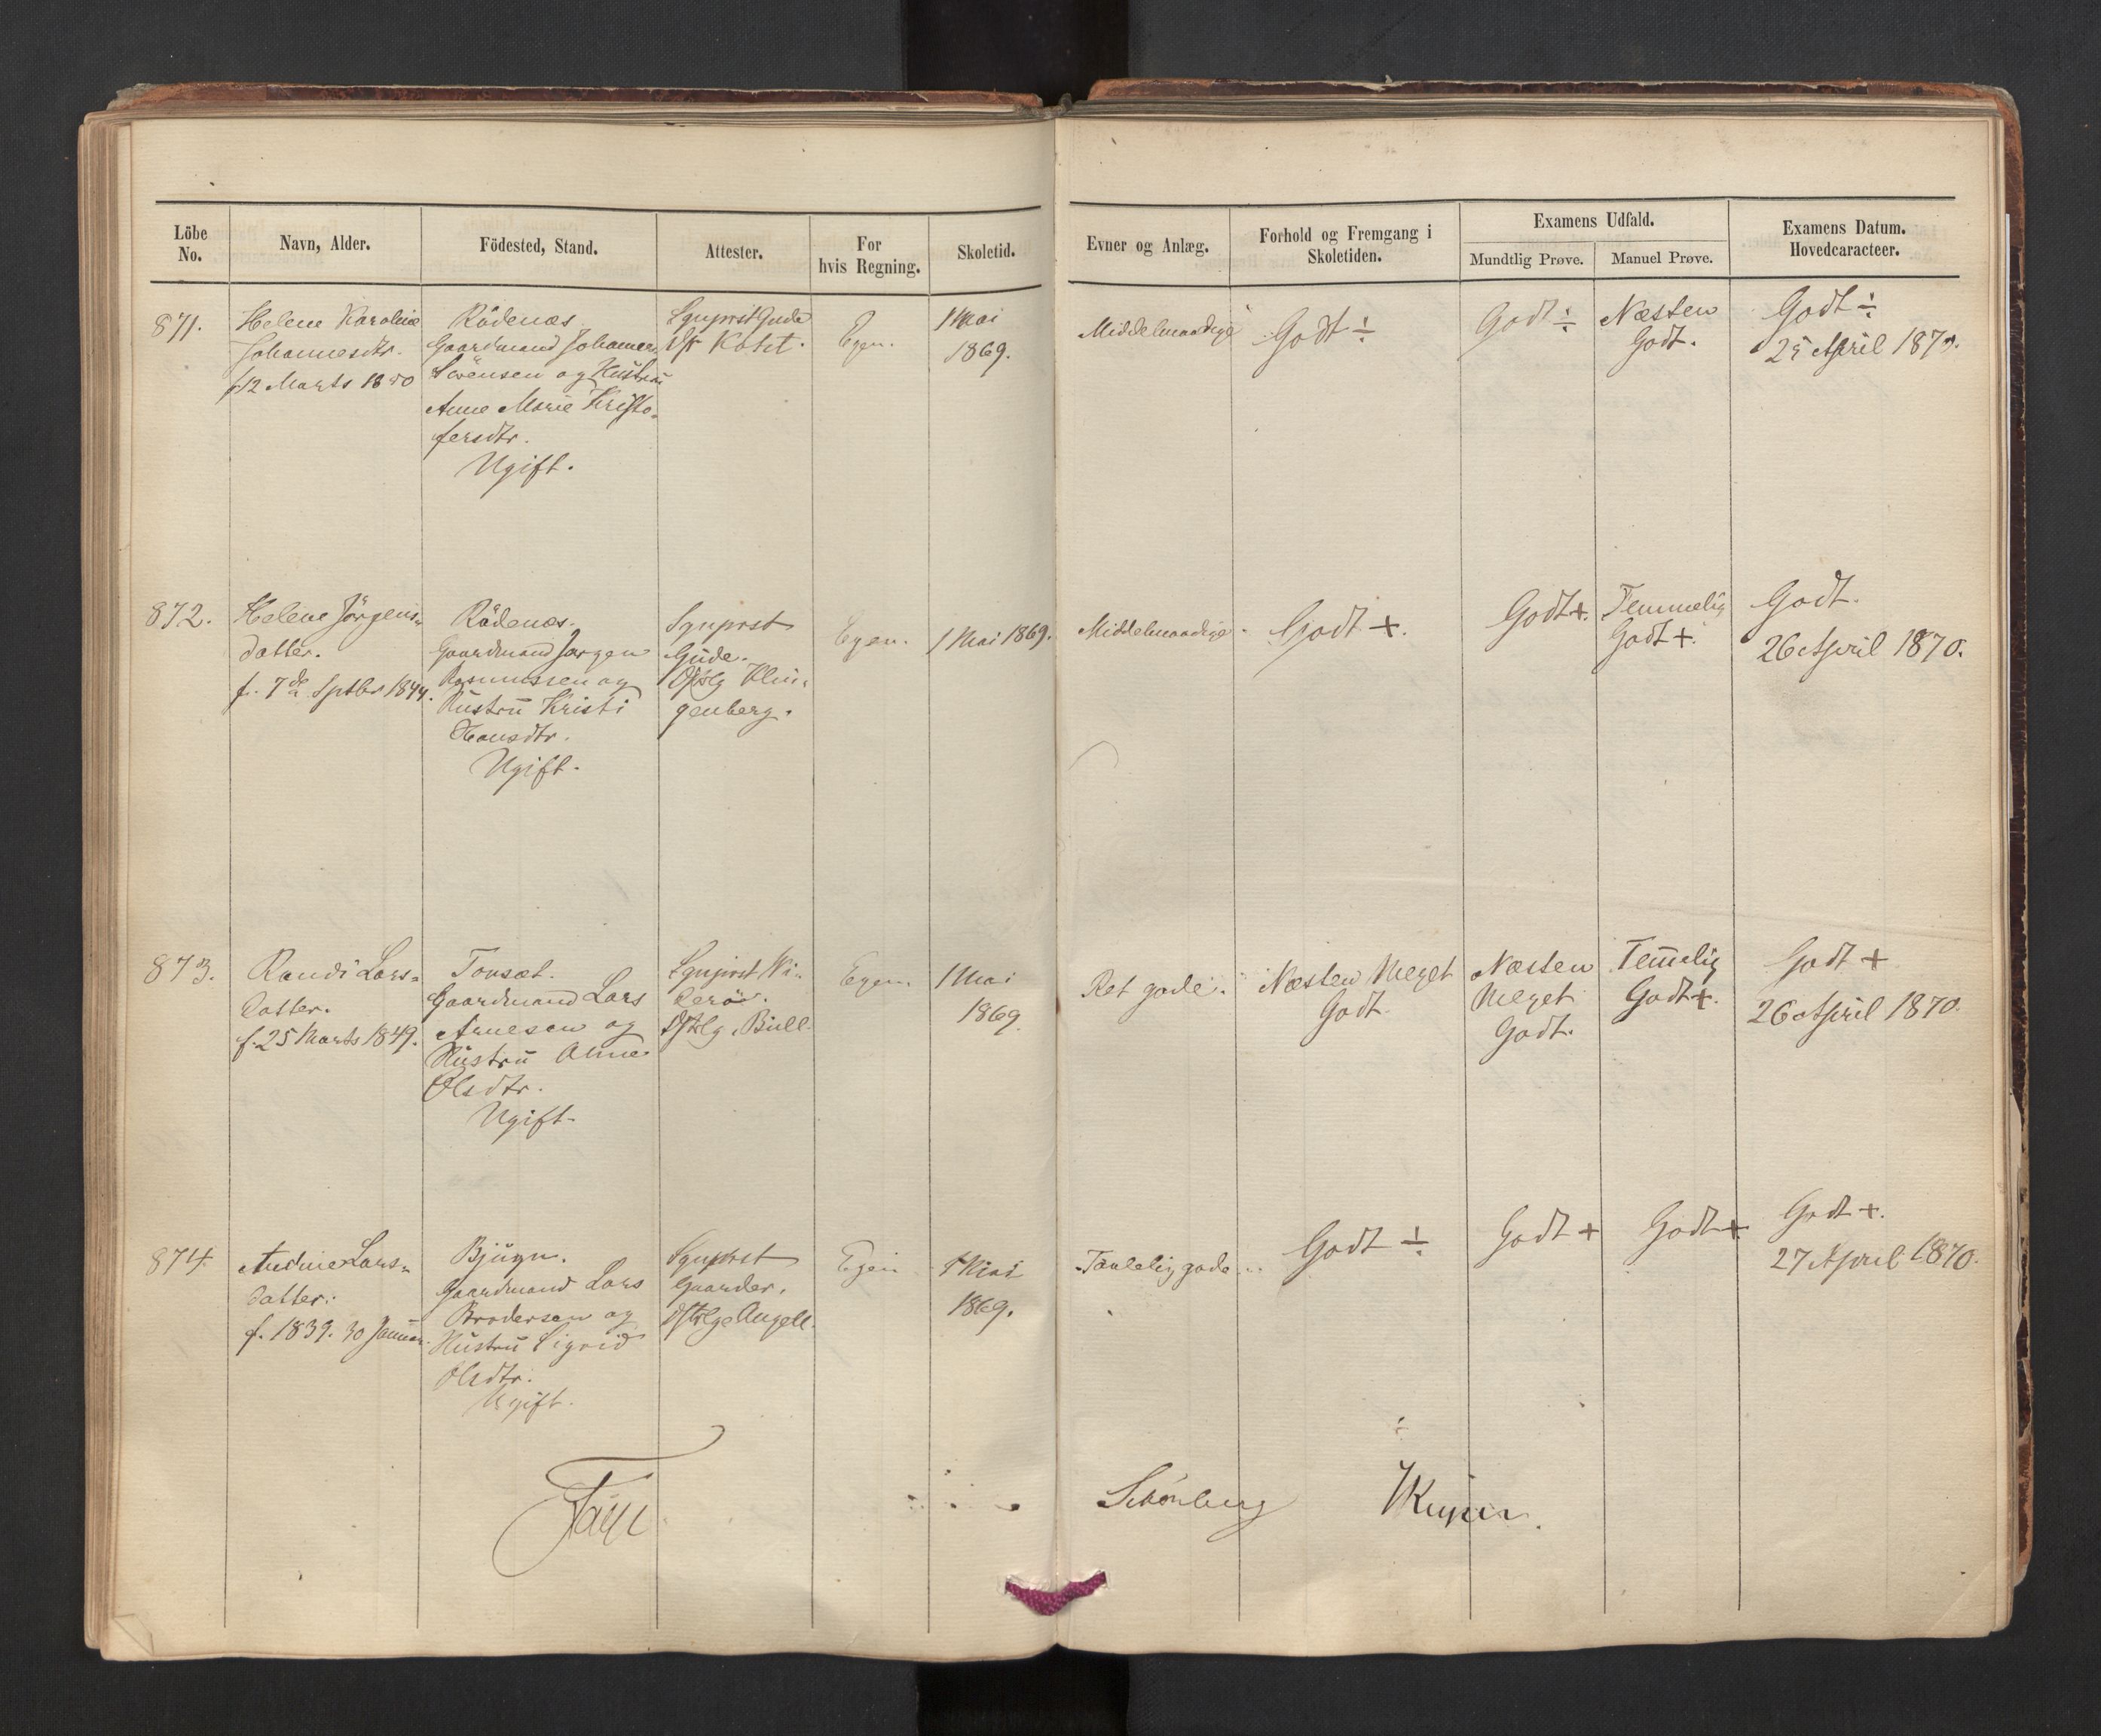 Löbe No.
Navn, Alder.
Födested, Stand.
Attester.
For hvis Regning.
Skoletid.
Evner og Anlæg.
Forhold og Fremgang i Skoletiden.
Examens Udfald.
Mundtlig Prøve.
Manuel Prøve.
Examens Datum. Hovedcaracteer.
871.
Helene Karoline
Johannesdtr.
f. 12 Marts 1850
Rödenæs.
Gaardmand Johannes
Sörensen og Hustru
Anne Marie Kristo-
fersdtr.
Ugift.
Sgnprst Gude
Egen.
1 Mai
1869.
Middelmaadige
Godt ÷
Godt ÷
Næsten
Godt.
Godt ÷
25 April 1870.
872.
Helene Jörgens-
datter.
f. 7de Sptbr 1844.
Rödenæs.
Gaardmand Jørgen
Rasmussen og
Hustru Kristi
Hansdtr.
Ugift.
Sgnprst
Gude.
Dstrlg Klin-
genberg.
Egen.
1 Mai 1869.
Middelmaadige.
Godt +.
Godt+.
Temmelig
Godt +.
Godt.
26 April 1870.
873.
Randi Lars-
datter.
f. 25 Marts 1849.
Tonsæt.
Gaardmand Lars
Arnesen og
Hustru Anne
Olsdtr.
Ugift.
Sgnprst Wi-
Dstrlg Bull.
Egen.
1 Mai
1869.
Ret gode.
Næsten Meget
Godt.
Næsten
Meget
Godt.
Temelig
Godt+.
Godt +
26 April 1870.
874.
Andrine Lars-
datter.
f. 1839. 30 Januar.
Bjugn.
Gaardmand Lars
Brodersen og
Hustru Sigrid
Olsdtr.
Ugift.
Sgnprst
Gaarder.
Dstrlge Angell.
Egen
1 Mai
1869.
Taalelig gode.
Godt ÷
Godt +
Godt +
Godt +.
27 April 1870.
Faye
Schönberg